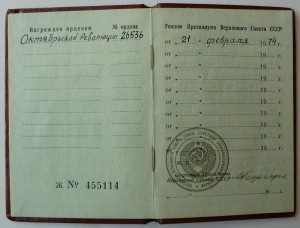 Награжден орденом
№ ордена
Октябрьской Революции 26536
Ж № 455114
Указом Президиума Верховного Совета СССР
от „21 " февраля 1974г.
от „ " 19 г.
от „ " 19 г.
от „ " 19 г.
от „ " 19 г.
от „ " 19 г.
от „ " 19 г.
от „ " 19 г.
М. П.
Секретарь Президиума
Верховного Совета СССР